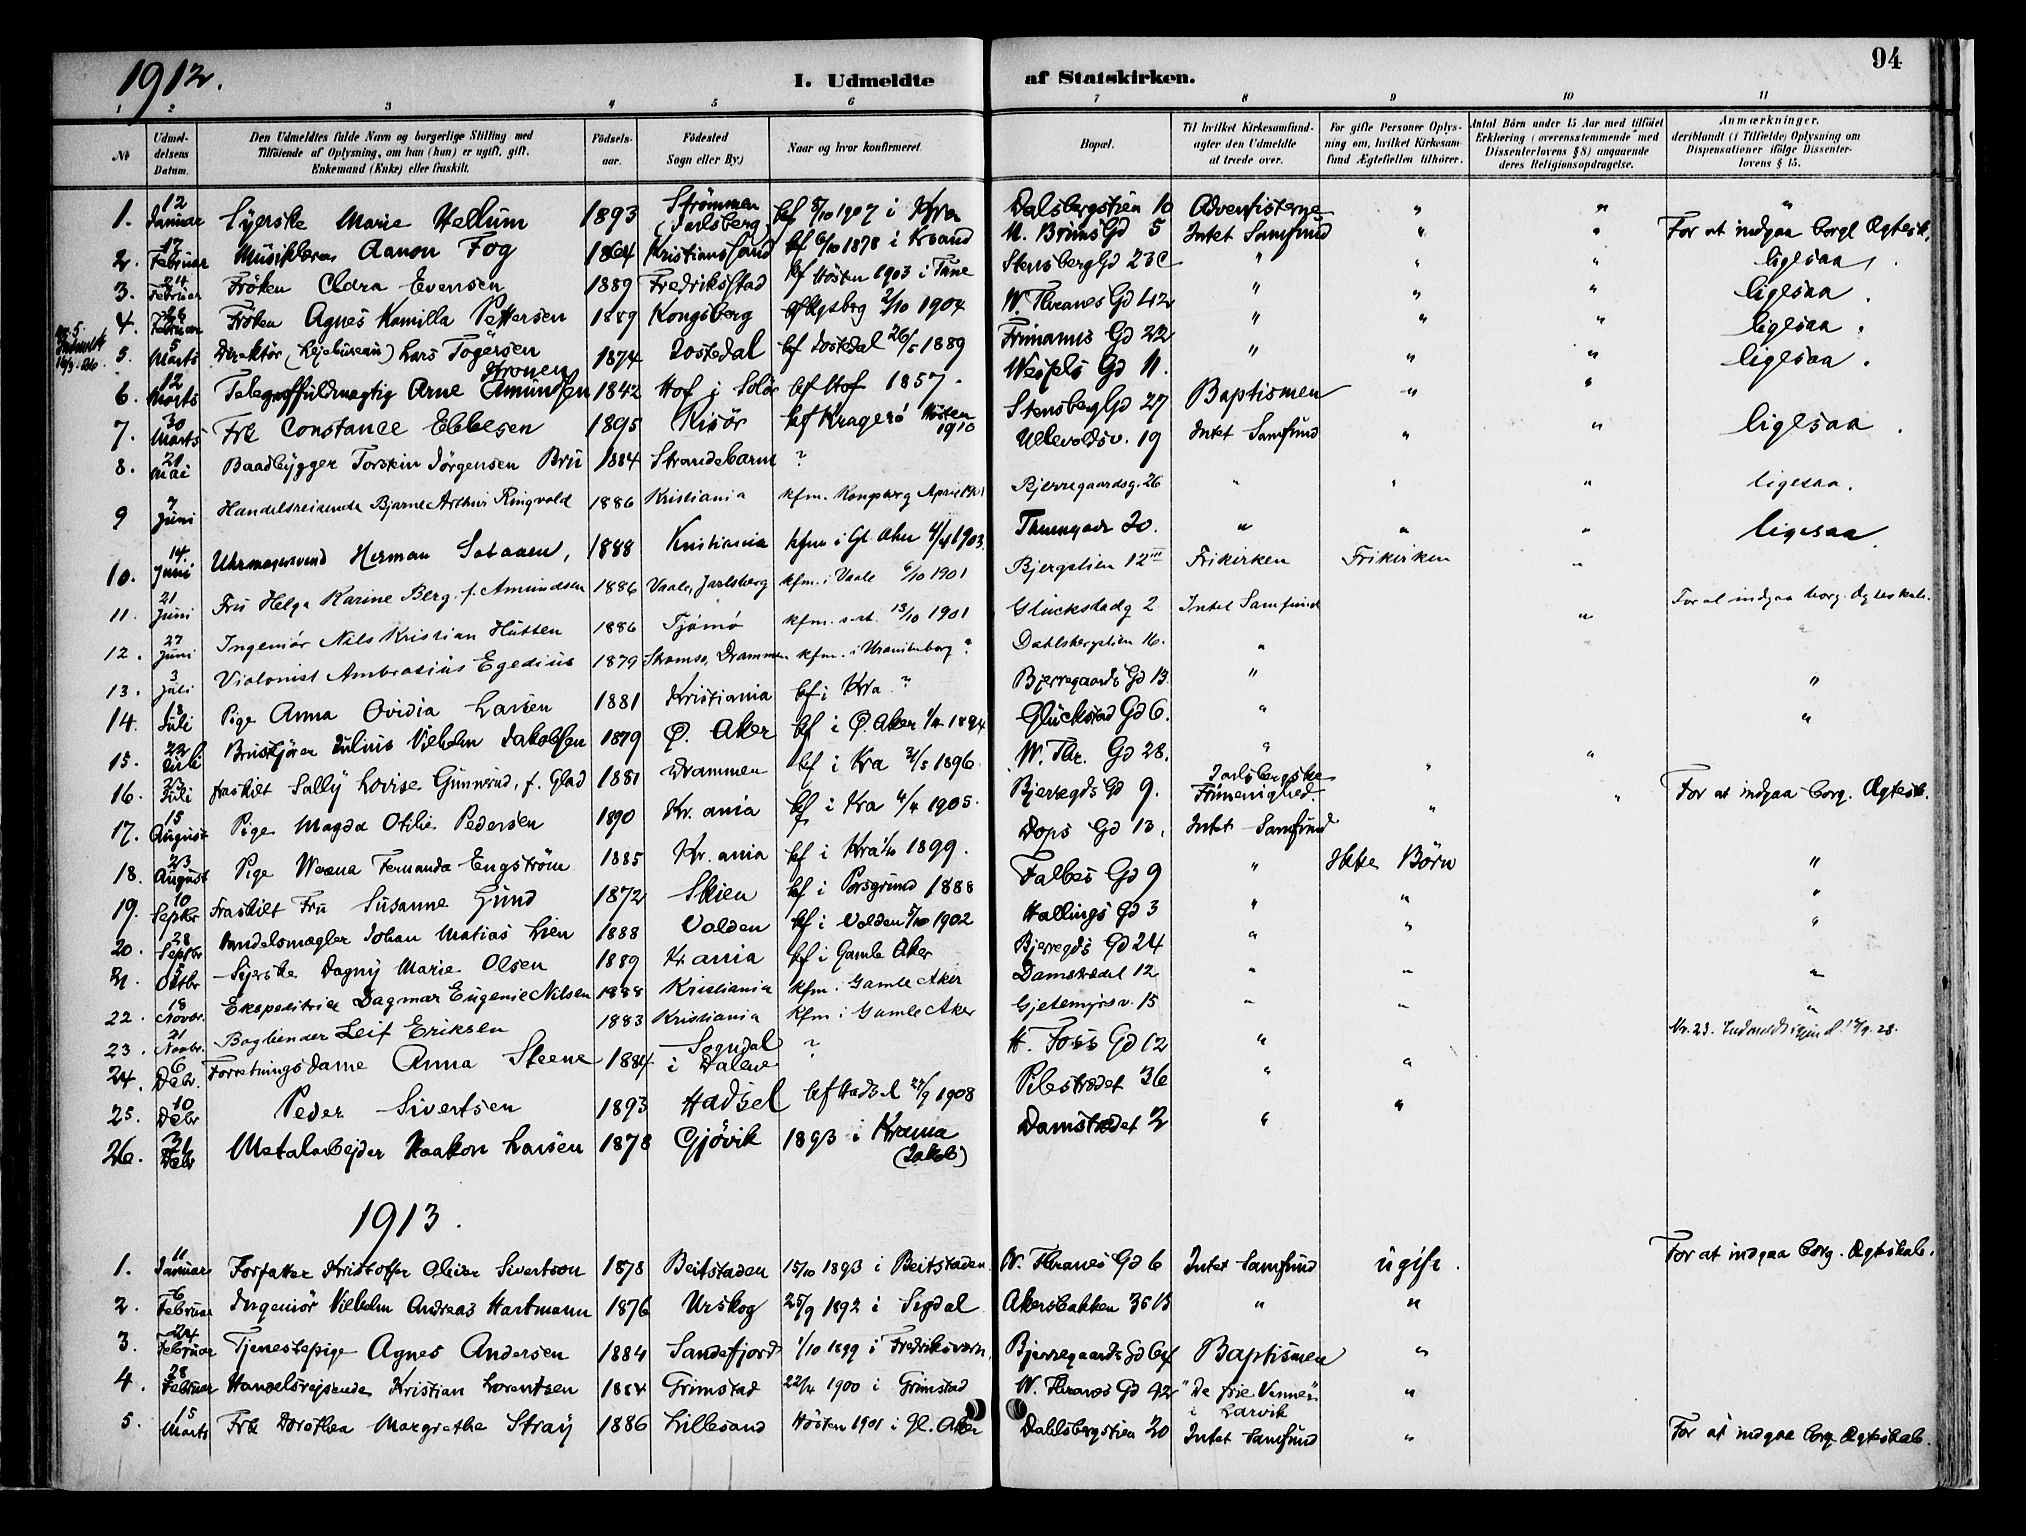 94
1912.
I. Udmeldte af Statskirken.
1 2 3 4 5 6 7 8 9 10 11
No
Udmel-
delsens
Datum.
Den Udmeldtes fulde Navn og borgerlige Stilling med
Tilføiende af Oplysning, om han (hun) er ugift, gift,
Enkemand (Enke) eller fraskilt.
Fødsels-
aar.
Fødested
Sogn eller By.)
Naar og hvor konfirmeret
Bopæl.
Til hvilket Kirkesamfund-
agter den Udmeldte
at træde over.
For gifte Personer Oplys-
ning om, hvilket Kirkesam-
fund Ægtefællen tilhører.
Antal Børn under 15 Aar med tilføiet
Erklæring (overensstemmende med
Dissenterlovens § 8) angaaende
deres Religionsopdragelse.
Anmærkninger,
deriblandt (i Tilfælde) Oplysning om
Dispensationer ifølge Dissenter-
lovens § 15.
1. 12 Januar Syerske Marie Hellum 1893 Strømmen (Jarlsberg) kf 8/10 1907 i Kra Dalsbergstien 10 Adventisterne " " "
2. 17 Februar Musiklærer Aanon Fog 1864 Kristianssand kf 6/10 1878 i Krsand M. Bruns Gd 5 Intet Samfund " " For at indgaa borgl Ægtesk.
3. 24 Februar Frøken Clara Evensen 1889 Fredriksstad kf Høsten 1903 i Tune Stensberg Gd 23 C " " " ligesaa.
4. Februar Frøken Agnes Kamilla Pettersen 1889 Kongsberg kf Kgsberg 2/10 1904 W. Thranes Gd 42 " " " ligesaa.
5. 5 Marts Direktør (Lejebureau) Lars Tøgersen Kronen 1874 Jostedal kf Jostedal 26/5 1889 Frimanns Gd 22 " " " ligesaa.
6. 12 Marts Telegraffuldmægtig Arne Amundsen 1842 Hof i Solør kf Hof 1857. Wessels Gd 11. " " " ligesaa.
7. 30 Marts Frk Constance Ebbesen 1895 Risør kf Kragerø Høsten 1910 Stensberg Gd 27 Baptismen " "
8. 21 Mai Baadbygger Torstein Jørgensen Bru 1884 Strandebarm ? Ullevoldsv. 19 Intet Samfund " " ligesaa.
9 7 Juni Handelsreisende Bjarne Arthur Ringvold 1886 Kristiania kfm. Kongsberg April 1901 Bjerregaardsg. 26 " " " ligesaa.
10. 14. Juni Uhrmagersvend Herman Sataaen, 1888 Kristiania kfm i Gl. Aker 4/4 1903. Thuengade 20. " " " ligesaa.
11. 21 Juni Fru Helga Karine Berg f. Amundsen 1886 Vaale, Jarlsberg kfm. i Vaale 6/10 1901 Bjergstien 12 III Frikirken Frikirken "
12. 27 Juni Ingeniør Nils Kristian Hutten 1886 Tjømø kfm. s. st. 13/10 1901 Glückstadg 2 Intet Samfund " For at indgaa borg. Ægteskab.
13. 3 Juli Violonist Ambrosius Egedius 1879 Strømsø, Drammen kfm. i Uranienborg ? Dahlsbergstien 16. " "
14. 18 Juli Pige Anna Ovidia Larsen 1881 Kristiania kf i Kra ? Bjerregaards Gd 13. " "
15. 22 Juli Julius Vilhelm Jakobsen 1879 Ø. Aker kf i Ø. Aker 1894 Glückstad Gd 6. " "
16. 23 Juli fraskilt Sally Lovise Gunnerud, f. Glad 1881 Drammen kf i Kra 31/5 1896 W. Thr. Gd 28. " " "
17. 15 August Pige Magda Otilie Pedersen 1890 Kr. ania kf i Kra 4/4 1905. Bjerregds Gd 9. Jarlsbergske Frimenighed. " " For at indgaa borg. Ægtesk.
18. 23 August Pige Fernanda Engstrøm 1885 Kr. ania kf i Kra 1/10 1899. Dops Gd 13. Intet Samfund "
19. 10 Septbr Fraskilt Fru Susanne Lund 1872 Skien kf i Porsgrund 1888 Falbes Gd 9 " Ikke Børn "
20. 28 Septbr Handelsmægler Johan Matias Lien 1888 Volden kf i Volden 5/10 1902 Hallings Gd 3 " " "
21. 5 Oktbr Sijerske Dagny Marie Olsen 1889 Kr. ania kf i Gamle Aker Bjerregds Gd 24 " " "
22. 18 Novbr. Ekspeditrice Dagmar Eugenie Nilsen 1888 Kristiania kfm. Gamle Aker Damstrædet 12 " " "
23. 21 Novbr. Bogbinder Leif Eriksen 1883 Kristiania kfm i Gamle Aker Gjetemyrsv. 15 " " "
Nr. 23. Indmeldt igjen d. 17/9. 28.
24. 6 Debr. Forretningsdame Anna Steene 1884 Sogndal i Dalene ? H. Foss Gd 12 "
25. 10 Debr Peder Sivertsen 1893 Hadsel kf Hadsel 27/9 1908 Pilestrædet 36 " "
26. 31 Debr Metalarbejder Haakon Larsen 1878 Gjøvik 1893 i Krania (Jakob) Damstrædet 2 " "
1913.
1. 11 Januar Forfatter Kristoffer Oliver Sivertson 1878 Beitstaden 15/10 1893 i Beitstaden W. Thranes Gd 6 Intet Samfund ugift. For at indgaa borg. Ægteskab.
2. 6 Februar Ingeniør Vilhelm Andreas Hartmann 1876 Urskog 25/9 1892 i Sigdal Akersbakken 35 B " "
3. 24 Februar Tjenestepige Agnes Andersen 1884 Sandefjord 1/10 1899 i Fredriksværn. Bjerregaards Gd 64 Baptismen "
4. 28 Februar Handelsrejsende Kristian Lorentsen 1884 Grimstad 22/4 1900 i Grimstad W. Thranes Gd 42 "De frie Venner" i Larvik "
5. 15 Marts Frk Dorothea Margrethe Stray 1886 Lillesand Høsten 1901 i Gl. Aker Dahlsbergstien 20 Intet Samfund " For at indgaa borg Ægteskab.